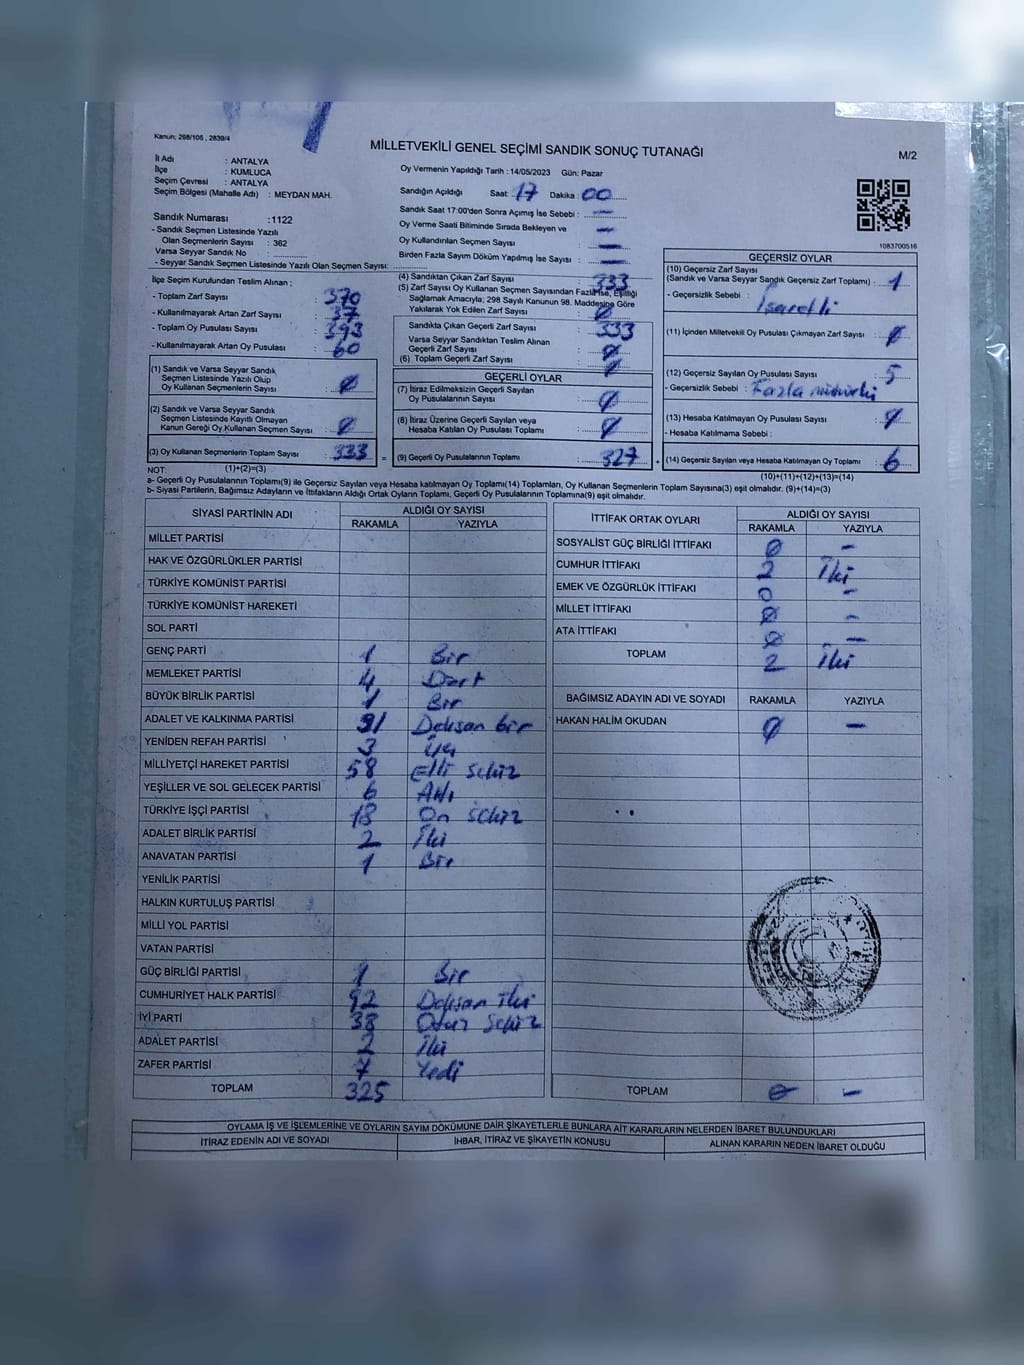 Kanun; 298/105 , 2839/4
MİLLETVEKİLİ GENEL SEÇİMİ SANDIK SONUÇ TUTANAĞI
M/2
İl Adı : ANTALYA
İlçe : KUMLUCA
Seçim Çevresi : ANTALYA
Seçim Bölgesi (Mahalle Adı) : MEYDAN MAH.
Oy Vermenin Yapıldığı Tarih : 14/05/2023 Gün: Pazar
Sandığın Açıldığı Saat: 17 Dakika : 00
Sandık Saat 17:00'den Sonra Açımış İse Sebebi : —
Oy Verme Saati Bitiminde Sırada Bekleyen ve
Oy Kullandırılan Seçmen Sayısı : —
Birden Fazla Sayım Döküm Yapılmış İse Sayısı : —
1083700516
Sandık Numarası :1122
- Sandık Seçmen Listesinde Yazılı
Olan Seçmenlerin Sayısı : 362
Varsa Seyyar Sandık No :
- Seyyar Sandık Seçmen Listesinde Yazılı Olan Seçmen Sayısı:
İlçe Seçim Kurulundan Teslim Alınan ;
- Toplam Zarf Sayısı : 370
- Kullanılmayarak Artan Zarf Sayısı : 37
- Toplam Oy Pusulası Sayısı : 393
- Kullanılmayarak Artan Oy Pusulası : 60
(1) Sandık ve Varsa Seyyar Sandık
Seçmen Listesinde Yazılı Olup
Oy Kullanan Seçmenlerin Sayısı : 0
(2) Sandık ve Varsa Seyyar Sandık
Seçmen Listesinde Kayıtlı Olmayan
Kanun Gereği Oy Kullanan Seçmen Sayısı : 0
(3) Oy Kullanan Seçmenlerin Toplam Sayısı : 333
(4) Sandıktan Çıkan Zarf Sayısı : 333
(5) Zarf Sayısı Oy Kullanan Seçmen Sayısından Fazla İse, Eşitliği
Sağlamak Amacıyla; 298 Sayılı Kanunun 98. Maddesine Göre
Yakılarak Yok Edilen Zarf Sayısı : 0
Sandıkta Çıkan Geçerli Zarf Sayısı : 333
Varsa Seyyar Sandıktan Teslim Alınan
Geçerli Zarf Sayısı : 0
(6) Toplam Geçerli Zarf Sayısı : 0
GEÇERLİ OYLAR
(7) İtiraz Edilmeksizin Geçerli Sayılan
Oy Pusulalarının Sayısı : 0
(8) İtiraz Üzerine Geçerli Sayılan veya
Hesaba Katılan Oy Pusulası Toplamı : 0
= (9) Geçerli Oy Pusulalarının Toplamı : 327 +
GEÇERSİZ OYLAR
(10) Geçersiz Zarf Sayısı
(Sandık ve Varsa Seyyar Sandık Geçersiz Zarf Toplamı) : 1
- Geçersizlik Sebebi : İşaretli
(11) İçinden Milletvekili Oy Pusulası Çıkmayan Zarf Sayısı : 0
(12) Geçersiz Sayılan Oy Pusulası Sayısı : 5
- Geçersizlik Sebebi : Fazla mühürlü
(13) Hesaba Katılmayan Oy Pusulası Sayısı : 0
- Hesaba Katılmama Sebebi :
(14) Geçersiz Sayılan veya Hesaba Katılmayan Oy Toplamı : 6
NOT: (1)+(2)=(3)
(10)+(11)+(12)+(13)=(14)
a- Geçerli Oy Pusulalarının Toplamı(9) ile Geçersiz Sayılan veya Hesaba katılmayan Oy Toplamı(14) Toplamları, Oy Kullanan Seçmenlerin Toplam Sayısına(3) eşit olmalıdır. (9)+(14)=(3)
b- Siyasi Partilerin, Bağımsız Adayların ve İttifakların Aldığı Ortak Oyların Toplamı, Geçerli Oy Pusulalarının Toplamına(9) eşit olmalıdır.
SİYASİ PARTİNİN ADI ALDIĞI OY SAYISI
RAKAMLA YAZIYLA
MİLLET PARTİSİ
HAK VE ÖZGÜRLÜKLER PARTİSİ
TÜRKİYE KOMÜNİST PARTİSİ
TÜRKİYE KOMÜNİST HAREKETİ
SOL PARTİ
GENÇ PARTİ 1 Bir
MEMLEKET PARTİSİ 4 Dört
BÜYÜK BİRLİK PARTİSİ 1 Bir
ADALET VE KALKINMA PARTİSİ 91 Doksan bir
YENİDEN REFAH PARTİSİ 3 Üç
MİLLİYETÇİ HAREKET PARTİSİ 58 Elli sekiz
YEŞİLLER VE SOL GELECEK PARTİSİ 6 Altı
TÜRKİYE İŞÇİ PARTİSİ 18 On sekiz
ADALET BİRLİK PARTİSİ 2 İki
ANAVATAN PARTİSİ 1 Bir
YENİLİK PARTİSİ
HALKIN KURTULUŞ PARTİSİ
MİLLİ YOL PARTİSİ
VATAN PARTİSİ
GÜÇ BİRLİĞİ PARTİSİ 1 Bir
CUMHURİYET HALK PARTİSİ 92 Doksan iki
İYİ PARTİ 38 Otuz sekiz
ADALET PARTİSİ 2 İki
ZAFER PARTİSİ 7 Yedi
TOPLAM 325
İTTİFAK ORTAK OYLARI ALDIĞI OY SAYISI
RAKAMLA YAZIYLA
SOSYALİST GÜÇ BİRLİĞİ İTTİFAKI 0 —
CUMHUR İTTİFAKI 2 İki
EMEK VE ÖZGÜRLÜK İTTİFAKI 0 —
MİLLET İTTİFAKI 0 —
ATA İTTİFAKI 0 —
TOPLAM 2 İki
BAĞIMSIZ ADAYIN ADI VE SOYADI RAKAMLA YAZIYLA
HAKAN HALİM OKUDAN 0 —
TOPLAM 0 —
OYLAMA İŞ VE İŞLEMLERİNE VE OYLARIN SAYIM DÖKÜMÜNE DAİR ŞİKAYETLERLE BUNLARA AİT KARARLARIN NELERDEN İBARET BULUNDUKLARI
İTİRAZ EDENİN ADI VE SOYADI İHBAR, İTİRAZ VE ŞİKAYETİN KONUSU ALINAN KARARIN NEDEN İBARET OLDUĞU